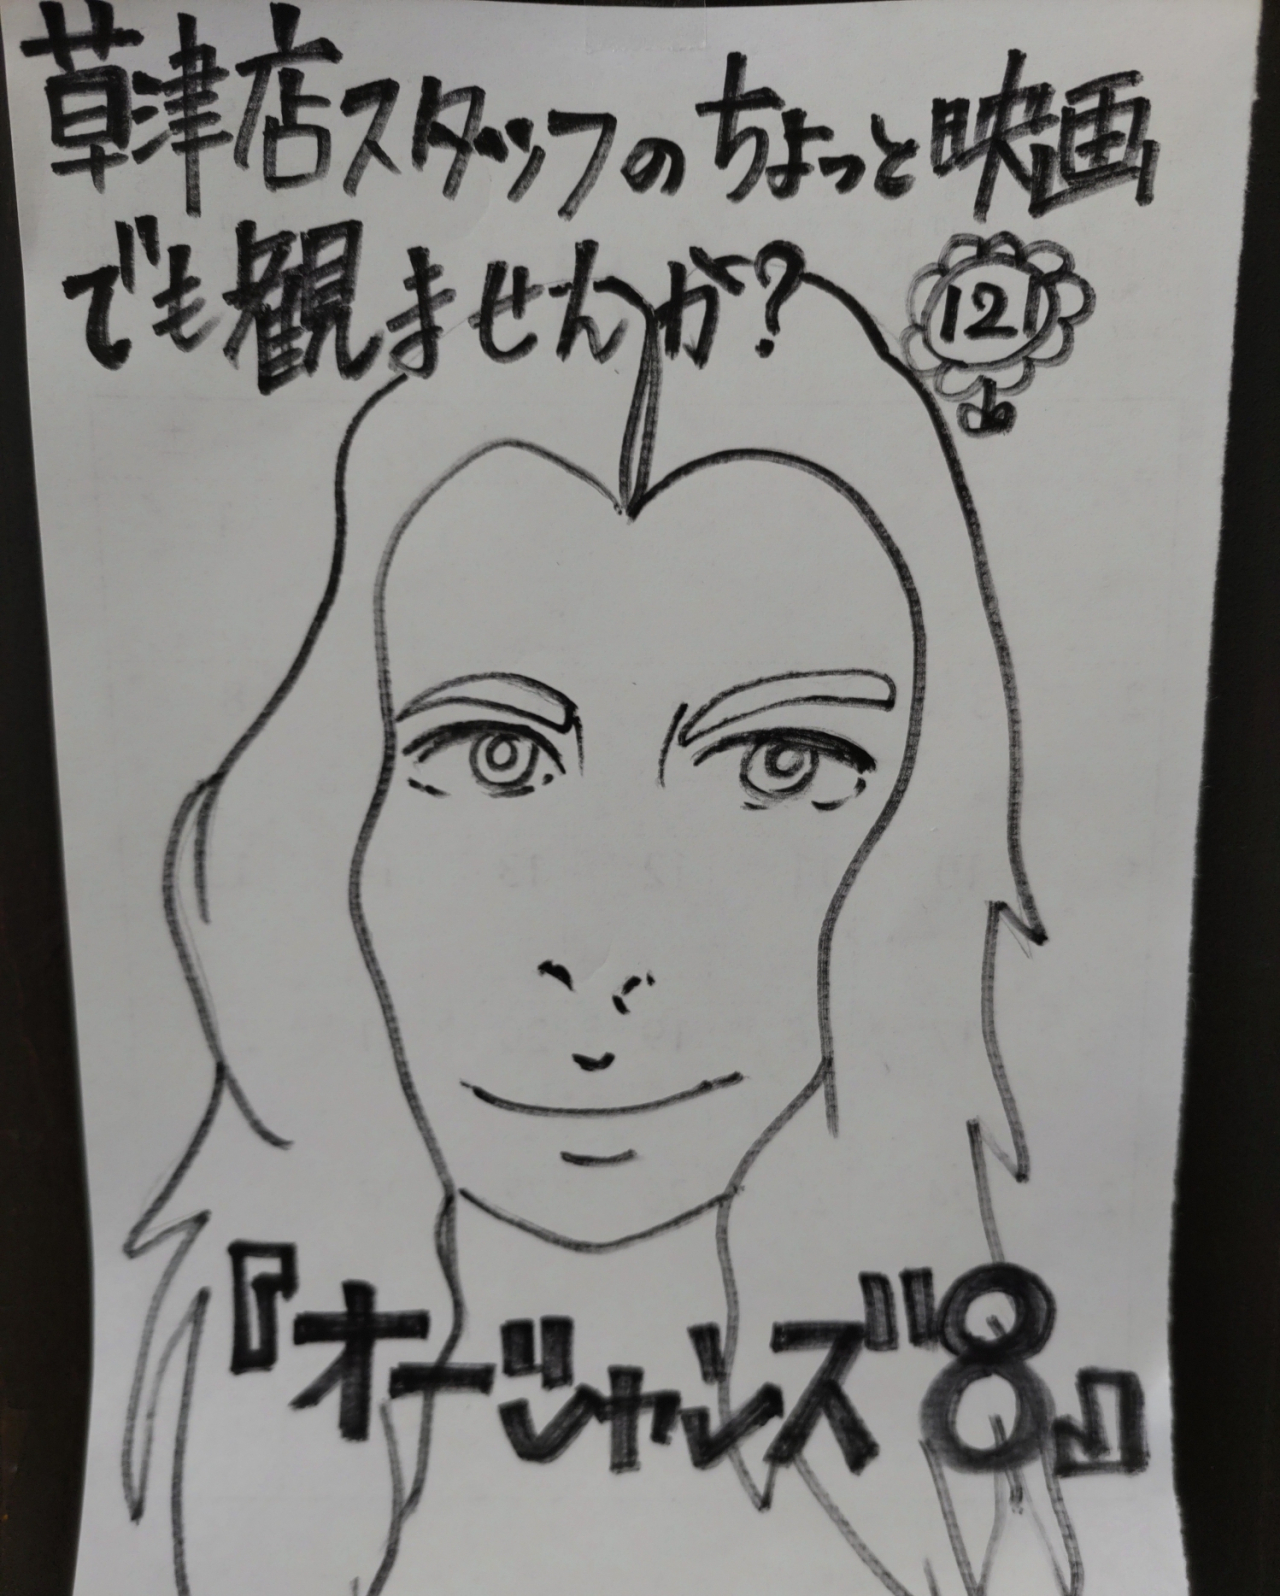 草津店スタッフのちょっと映画
でも観ませんか?
121
『オージャンズ8』